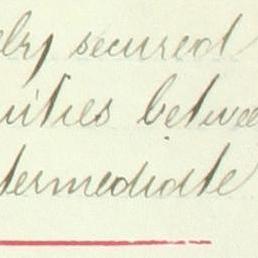 ely secured
uities betwee
termediate